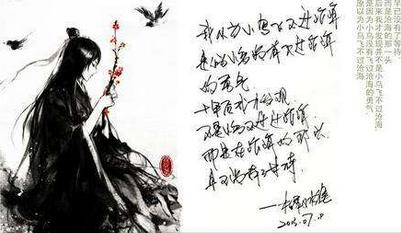 我以为小鸟飞不过沧海
是以为小鸟没有飞过沧海
的勇气
十年后我才发现
不是小鸟飞不过沧海
而是沧海的那一头
早已没有了等待
原以为小鸟飞不过沧海
是因为小鸟没有飞过沧海的勇气
后来我才发现并不是小鸟飞不过沧海
而是沧海的那一头
早已没有了等待